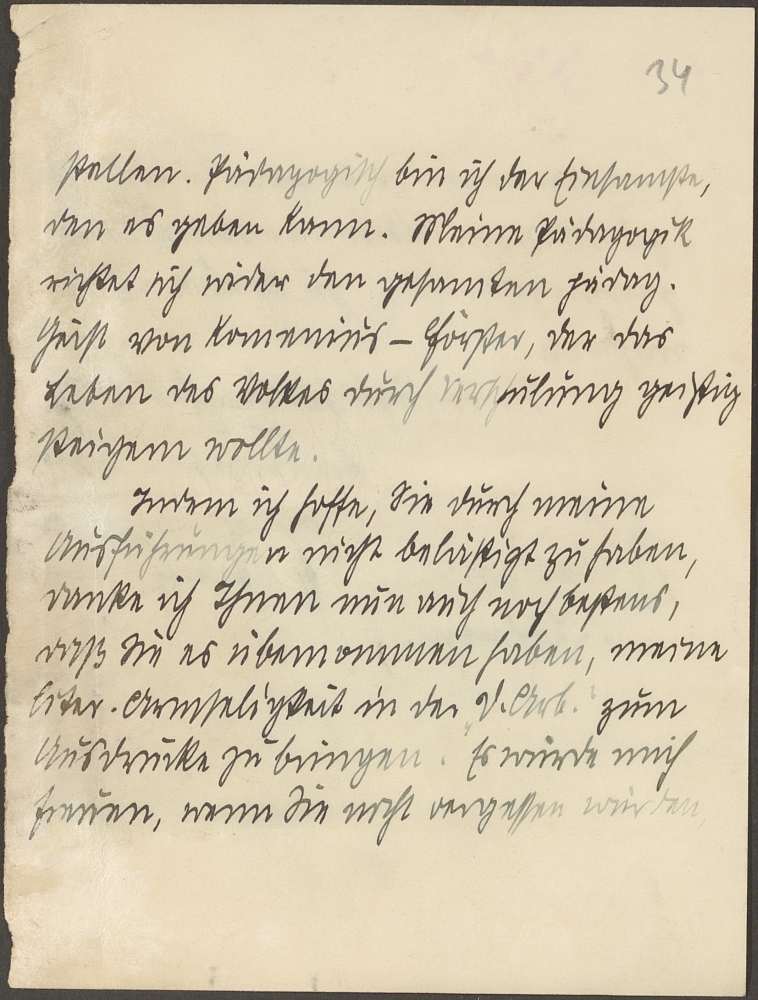 34
stellen. Pädagogisch bin ich der Einsamste,
den es geben kann. Meine Pädagogik
richtet sich wider den gesamten pädag.
Geist von Komenius – Förster, der das
Leben des Volkes durch Verschulung geistig
steigern wollte.
Indem ich hoffe, Sie durch meine
Ausführungen nicht belästigt zu haben,
danke ich Ihnen nun auch noch bestens,
daß Sie es übernommen haben, meine
liter. Armseligkeit in der „V. Arb.“ zum
Ausdrucke zu bringen. Es würde mich
freuen, wenn Sie nicht vergessen würden,